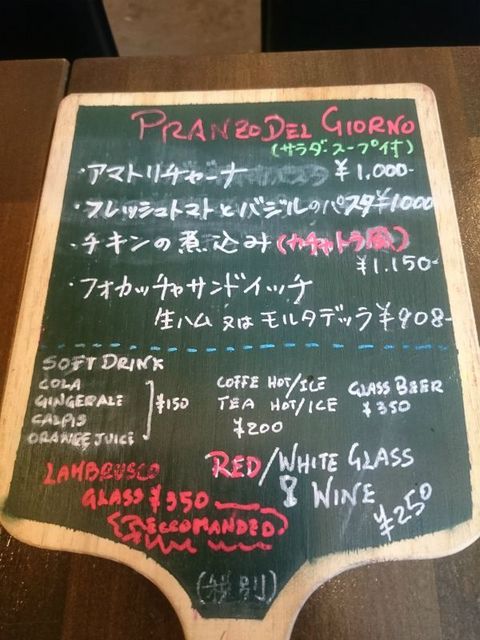 PRANZO DEL GIORNO
(サラダスープ付)
・アマトリチャーナ ¥1.000-
・フレッシュトマトとバジルのパスタ¥1000
・チキンの煮込み(カチャトラ風)
¥1.150-
・フォカッチャサンドイッチ
生ハム 又は モルタデッラ ¥908-
SOFT DRINK
COLA
GINGERALE
CALPIS
ORANGE JUICE
¥150
COFFE HOT/ICE
TEA HOT/ICE
¥200
GLASS BEER
¥350
LAMBRUSCO
GLASS ¥350
RECCOMANDED
RED/WHITE GLASS
WINE
¥250
(税別)